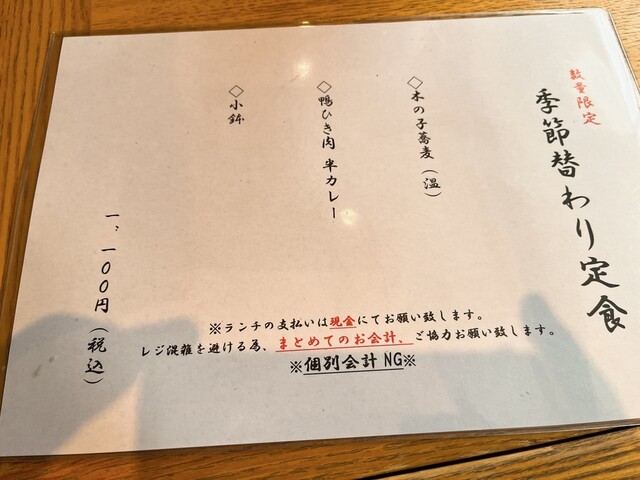 数量限定
季節替わり定食
◇木の子蕎麦（温）
◇鴨ひき肉 半カレー
◇小鉢
一、一００円（税込）
※ランチの支払いは現金にてお願い致します。
レジ混雑を避ける為、まとめてのお会計、ご協力お願い致します。
※個別会計 NG※